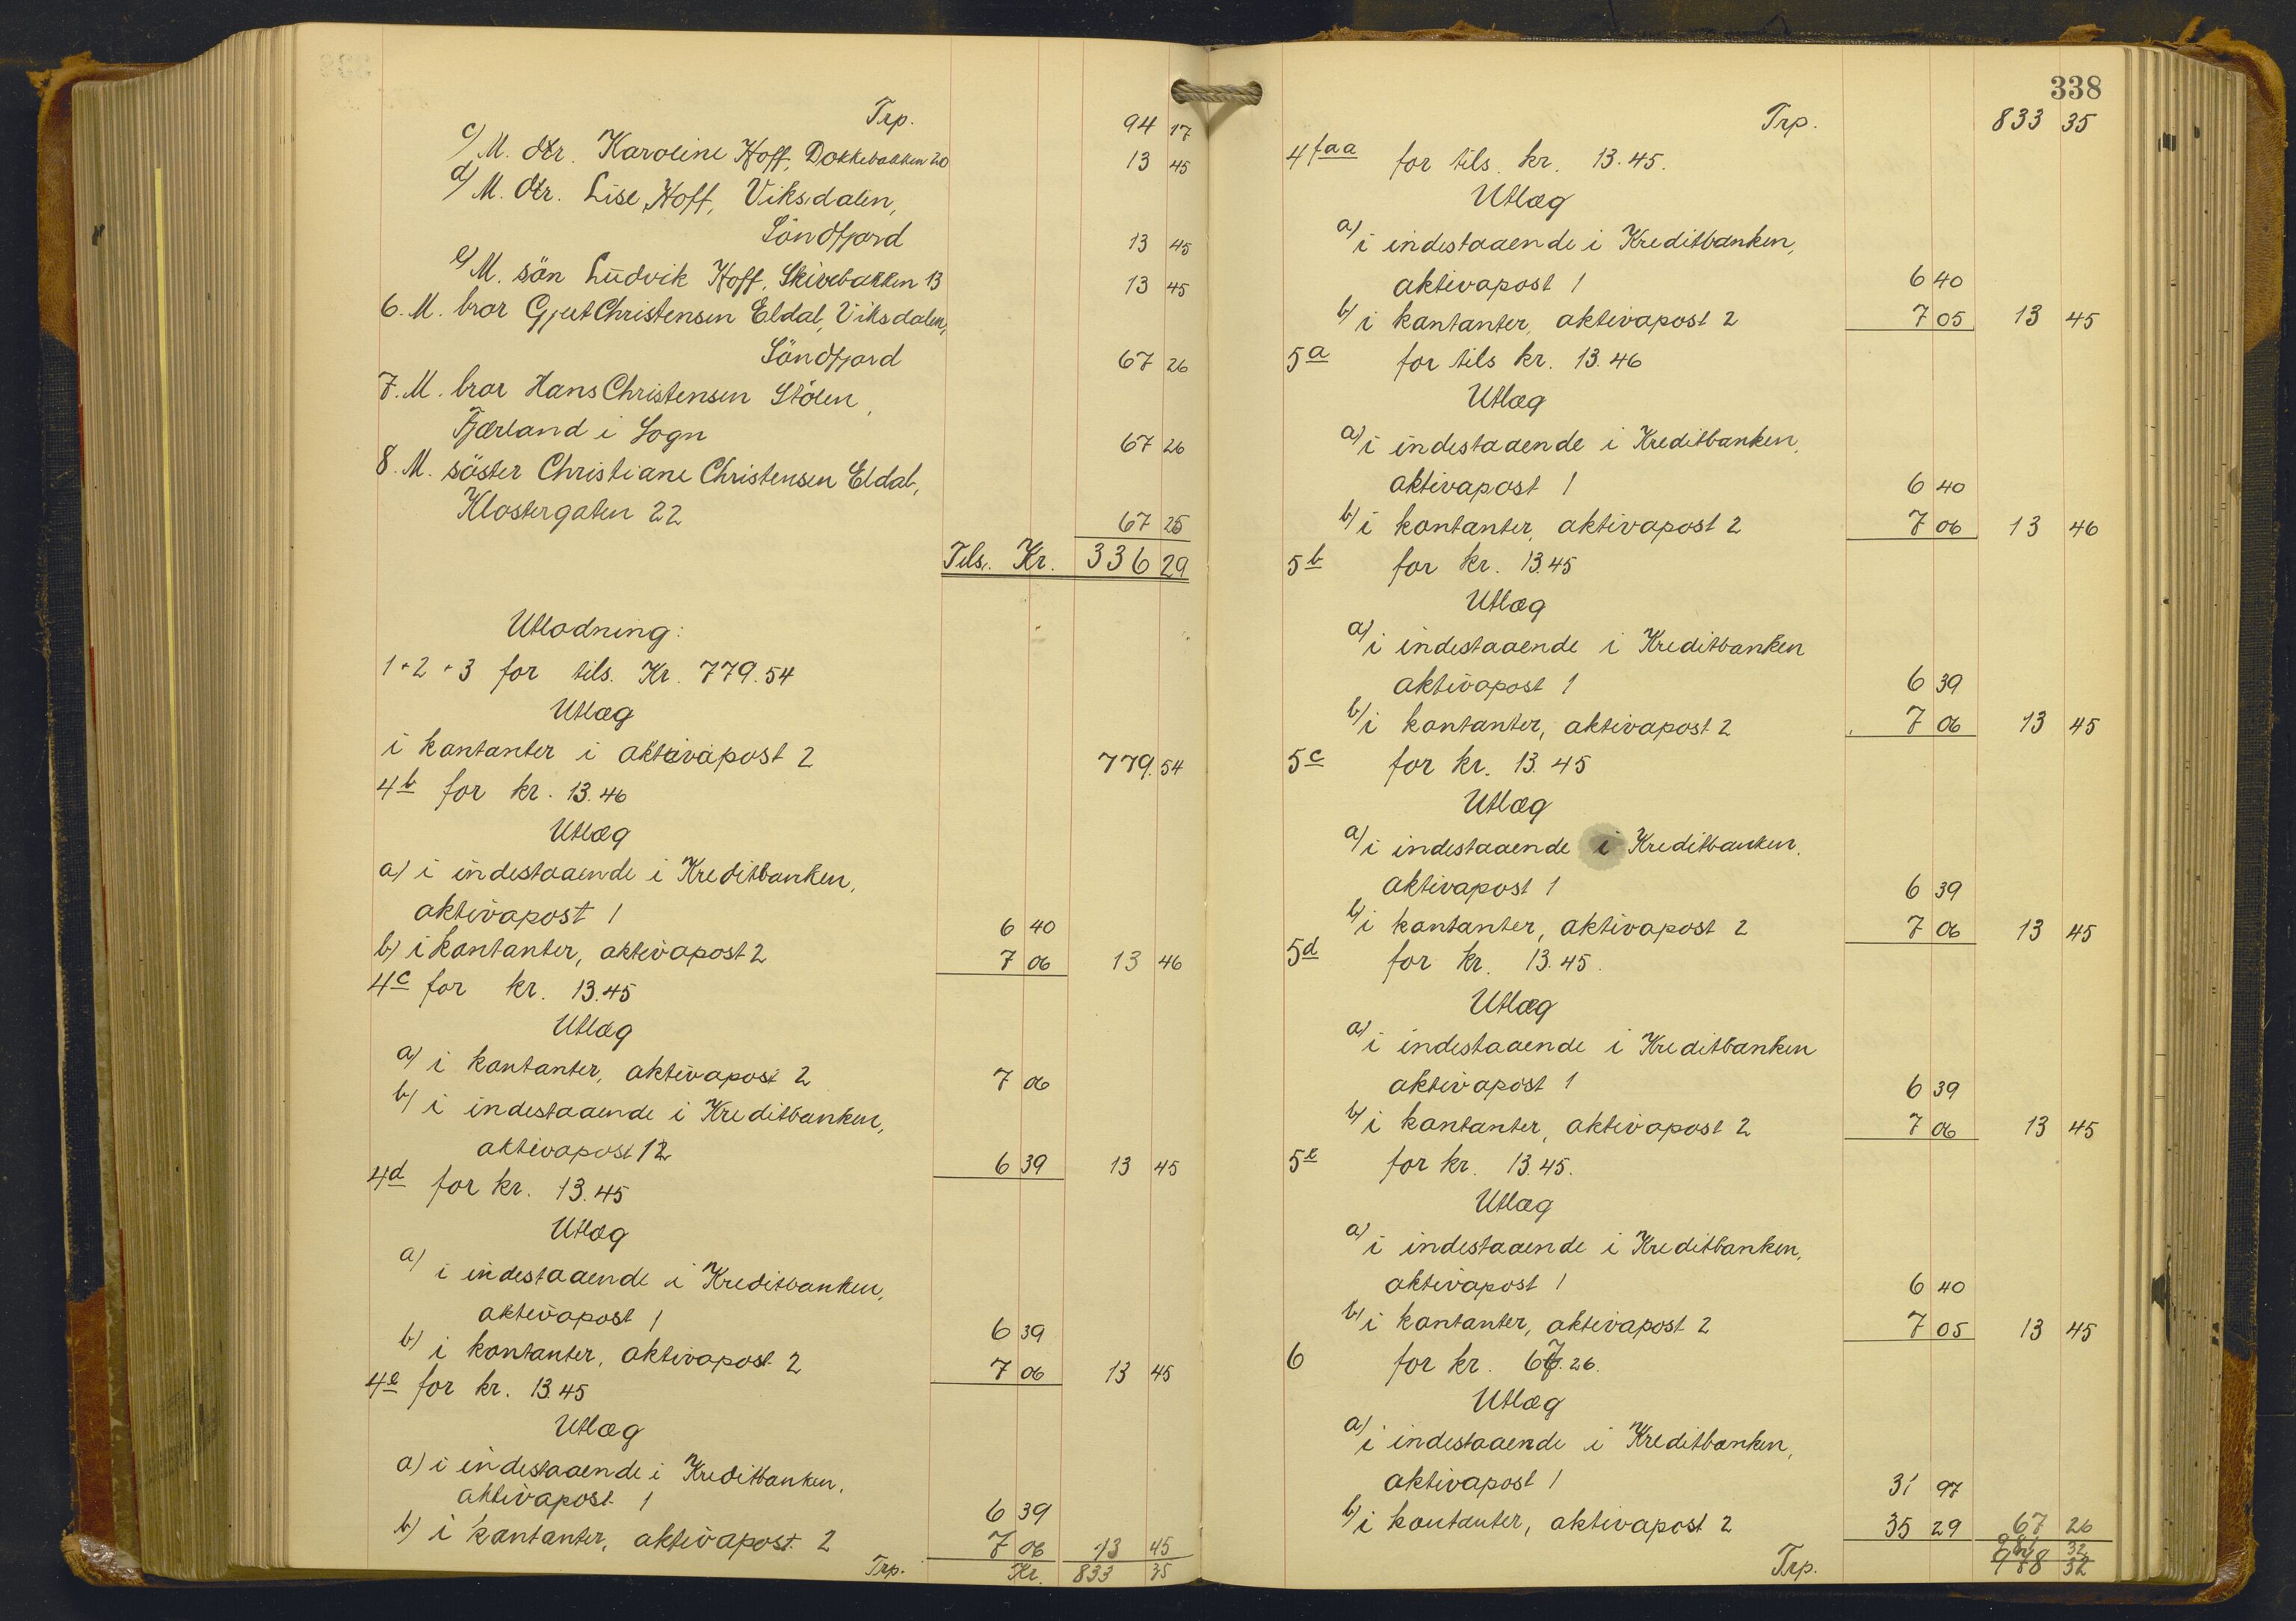 Trp. 94 17
c) M. dtr. Karoline Hoff, Dokkebakken 20 13 45
d) M. dtr. Lise Hoff, Viksdalen,
Söndfjord 13 45
e) M. sön Ludvik Hoff, Skivebakken 13 13 45
6. M. bror Gjert Christensen Eldal, Viksdalen,
Söndfjord 67 26
7. M. bror Hans Christensen Stölen,
Fjærland i Sogn 67 26
8. M. söster Christiane Christensen Eldal,
Klostergaten 22 67 25
Tils. Kr. 336 29
Utlodning:
1 + 2 + 3 for tils. Kr. 779.54
Utlæg
i kontanter i aktivapost 2 779.54
4b for kr. 13.46
Utlæg
a) i indestaaende i Kreditbanken,
aktivapost 1 6 40
b) i kontanter, aktivapost 2 7 06 13 46
4c for kr. 13.45
Utlæg
a) i kontanter, aktivapost 2 7 06
b) i indestaaende i Kreditbanken,
aktivapost 12 6 39 13 45
4d for kr. 13.45
Utlæg
a) i indestaaende i Kreditbanken,
aktivapost 1 6 39
b) i kontanter, aktivapost 2 7 06 13 45
4e for kr. 13.45
Utlæg
a) i indestaaende i Kreditbanken,
aktivapost 1 6 39
b) i kontanter, aktivapost 2 7 06 13 45
Trp. Kr. 833 35
338
Trp. 833 35
4faa for tils. kr. 13.45.
Utlæg
a) i indestaaende i Kreditbanken,
aktivapost 1 6 40
b) i kontanter, aktivapost 2 7 05 13 45
5a for tils kr. 13.46
Utlæg
a) i indestaaende i Kreditbanken,
aktivapost 1 6 40
b) i kontanter, aktivapost 2 7 06 13 46
5b for kr. 13.45
Utlæg
a) i indestaaende i Kreditbanken
aktivapost 1 6 39
b) i kontanter, aktivapost 2 7 06 13 45
5c for kr. 13.45
Utlæg
a) i indestaaende i Kreditbanken,
aktivapost 1 6 39
b) i kontanter, aktivapost 2 7 06 13 45
5d for kr. 13.45.
Utlæg
a) i indestaaende i Kreditbanken
aktivapost 1 6 39
b) i kontanter, aktivapost 2 7 06 13 45
5e for kr. 13.45.
Utlæg
a) i indestaaende i Kreditbanken,
aktivapost 1 6 40
b) i kontanter, aktivapost 2 7 05 13 45
6 for kr. 67.26.
Utlæg
a) i indestaaende i Kreditbanken,
aktivapost 1 31 97
b) i kontanter, aktivapost 2 35 29 67 26
981 32
Trp. 978 32